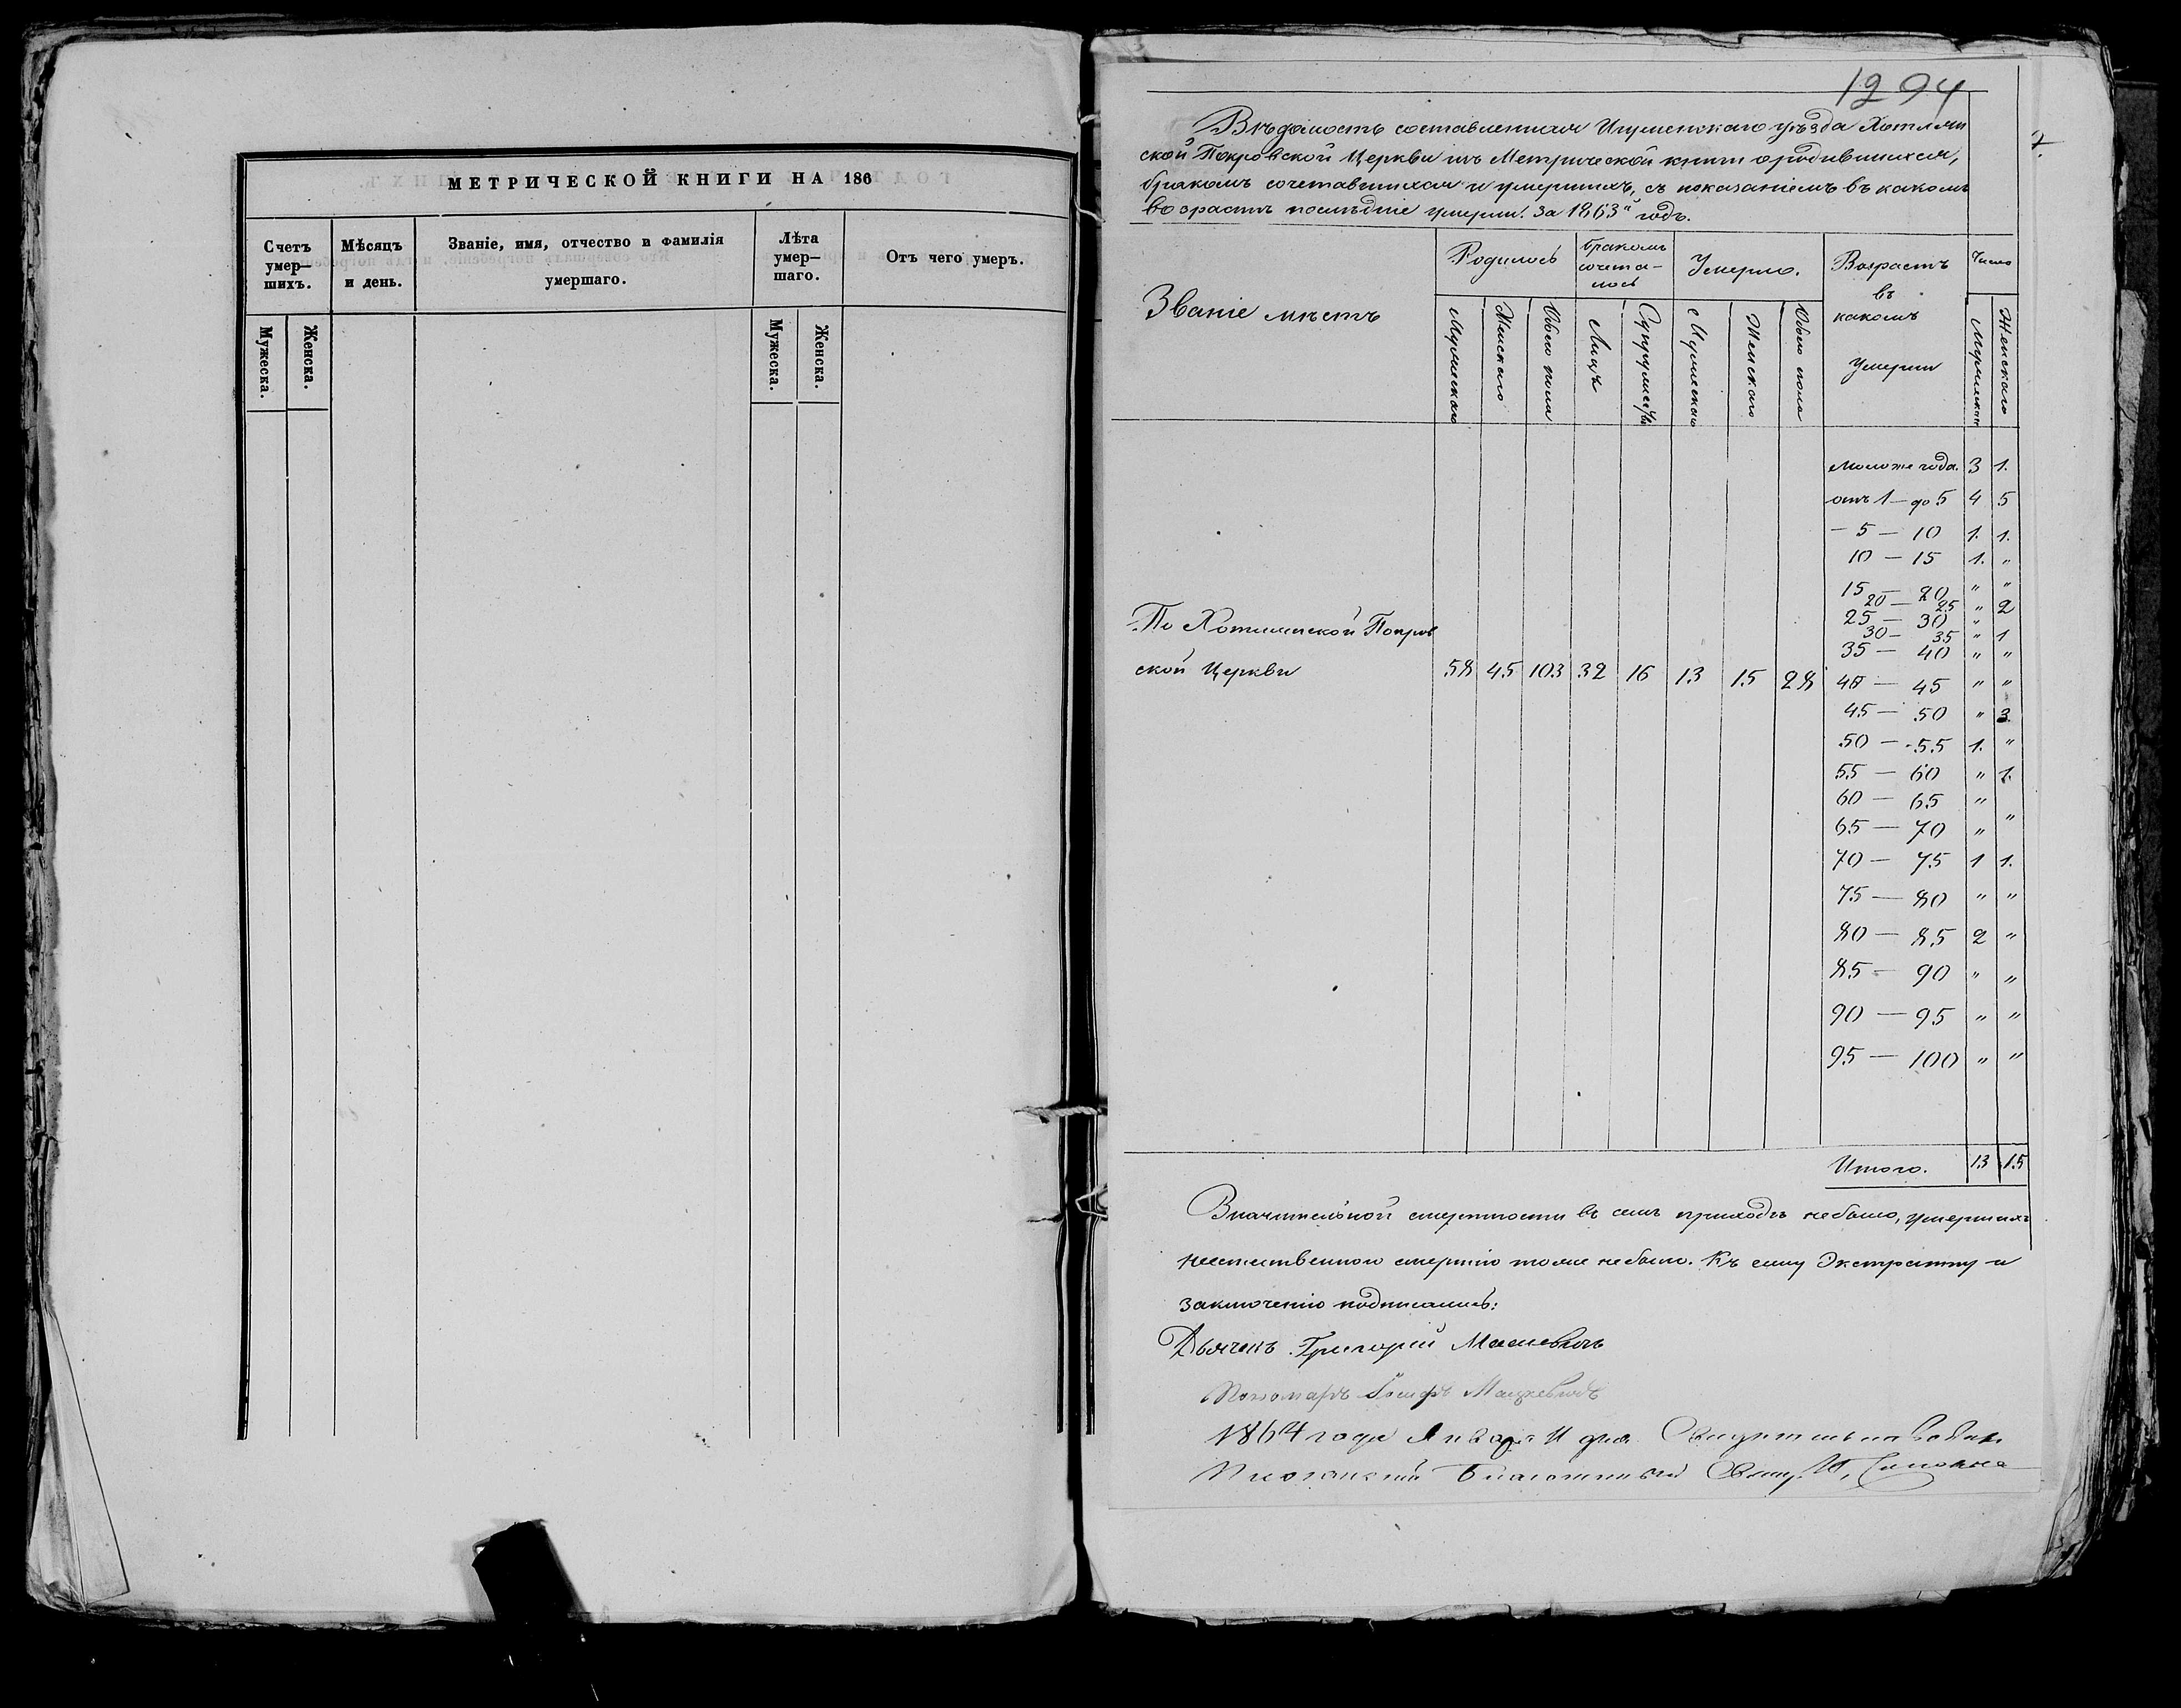 МЕТРИЧЕСКОЙ КНИГИ НА 186
Счетъ умер— шихъ.
Мѣсяцъ и день.
Званіе, имя, отчество и фамилія умершаго.
Лѣта умер— шаго.
Отъ чего умеръ.
Мужеска.
Женска.
Мужеска.
Женска.
1294
Вѣдомость составленная Игуменскаго уѣзда Хотлян
ской Покровской Церкви изъ Метрической книги о родившихся,
бракомъ сочетавшихся и умершихъ, съ показаніемъ въ какомъ
возрастѣ послѣдніе умерли. За 1863й годъ.
Званіе мѣстъ
Родилось
бракомъ сочета— лось
Умерло.
Возрастъ въ какомъ Умерли
Число
Мужескаго
Женскаго
Обоего пола
Лицъ
Супружествъ
Мужескаго
Женскаго
Обоего пола
Мужескаго
Женскаго
моложе года. 3 1.
отъ 1 — до 5 4 5
— 5 — 10 1. 1.
10 — 15 1. "
15 — 20 " "
20 — 25 " 2
25 — 30 "
30 — 35 " 1
35 — 40 " "
По Хотлянской Покров
ской Церкви 58 45 103 32 16 13 15 28
40 — 45 " "
45 — 50 " 3.
50 — 55 1. "
55 — 60 " 1.
60 — 65 "
65 — 70 " "
70 — 75 1 1.
75 — 80 " "
80 — 85 2 "
85 — 90 " "
90 — 95 " "
95 — 100 " "
Итого. 13 15
Значительной смертности въ семъ приходѣ небыло, умершихъ
неестественною смертію тоже небыло. Къ сему Экстракту и
заключенію подписались:
Дьячекъ Григорій
Пономарь Іосифъ Мацкевичъ
1864 года Января 11 дня
Благочинный